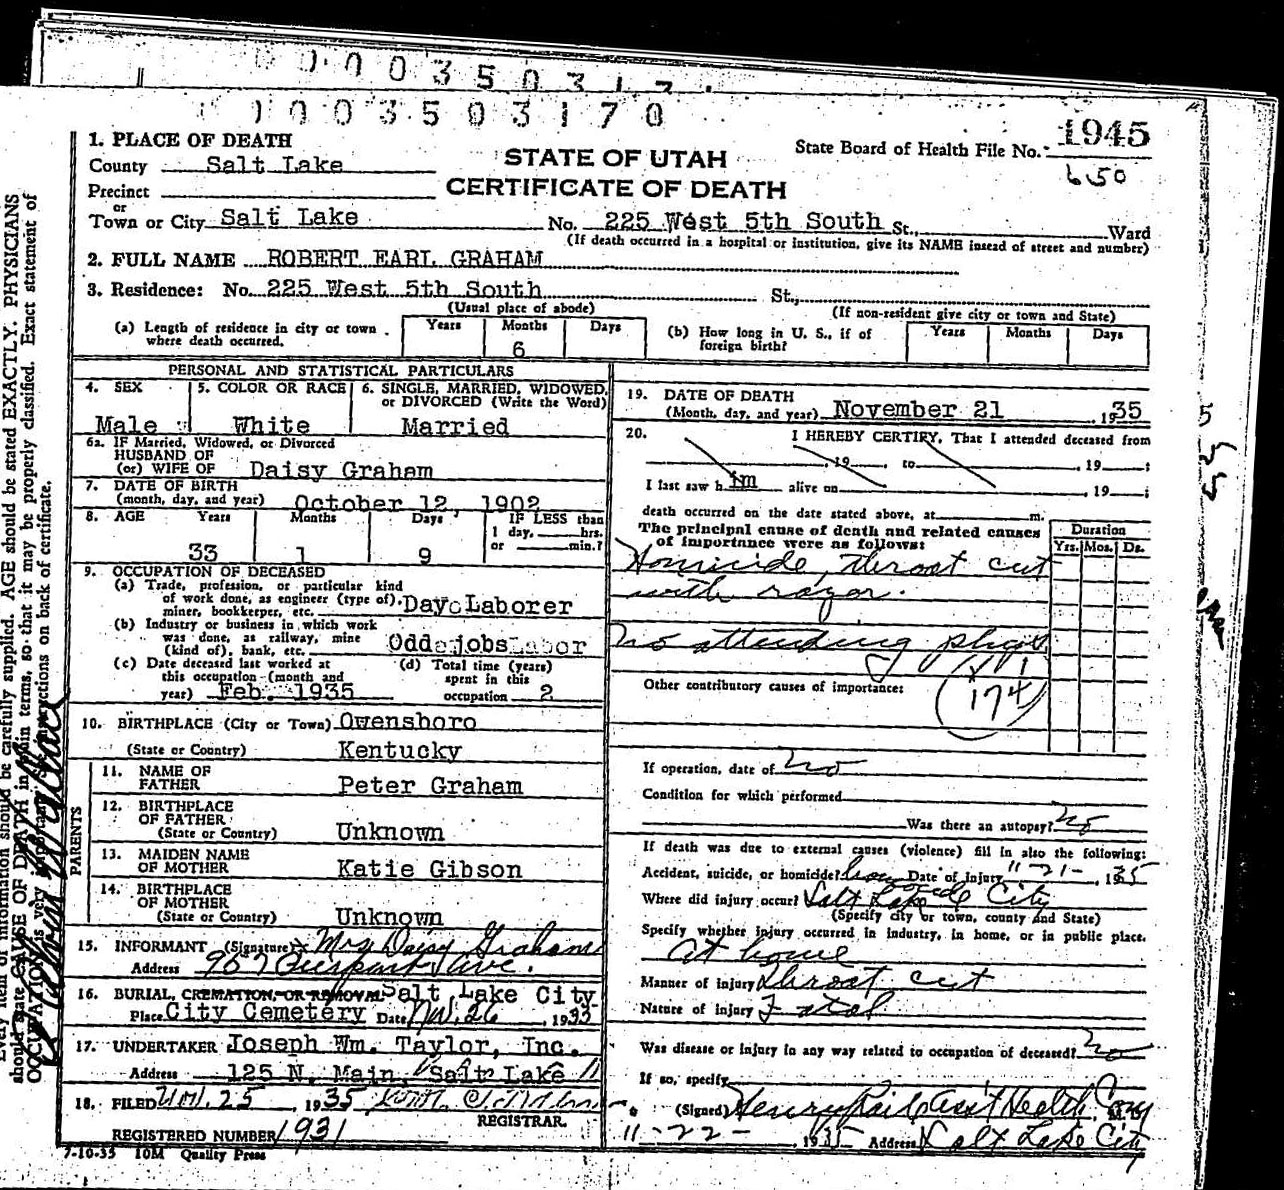 1003503170
1945
1. PLACE OF DEATH
STATE OF UTAH
State Board of Health File No.
County Salt Lake
650
CERTIFICATE OF DEATH
Precinct
or
Town or City Salt Lake No. 225 West 5th South St., Ward
(If death occurred in a hospital or institution, give its NAME instead of street and number)
2. FULL NAME ROBERT EARL GRAHAM
3. Residence: No. 225 West 5th South St.,
(Usual place of abode) (If non-resident give city or town and State)
(a) Length of residence in city or town where death occurred. Years Months 6 Days
(b) How long in U. S., if of foreign birth? Years Months Days
PERSONAL AND STATISTICAL PARTICULARS
4. SEX Male
5. COLOR OR RACE White
6. SINGLE, MARRIED, WIDOWED, or DIVORCED (Write the Word) Married
6a. IF Married, Widowed, or Divorced
HUSBAND OF
(or) WIFE OF Daisy Graham
7. DATE OF BIRTH
(month, day, and year) October 12, 1902
8. AGE Years 33 Months 1 Days 9
IF LESS than
1 day, hrs.
or min.?
9. OCCUPATION OF DECEASED
(a) Trade, profession, or particular kind
of work done, as engineer (type of).
miner, bookkeeper, etc. Day Laborer
(b) Industry or business in which work
was done, as railway, mine
(kind of), bank, etc. Odd jobs Labor
(c) Date deceased last worked at
this occupation (month and
year) Feb. 1935
(d) Total time (years)
spent in this
occupation 2
10. BIRTHPLACE (City or Town) Owensboro
(State or Country) Kentucky
PARENTS
11. NAME OF
FATHER Peter Graham
12. BIRTHPLACE
OF FATHER
(State or Country) Unknown
13. MAIDEN NAME
OF MOTHER Katie Gibson
14. BIRTHPLACE
OF MOTHER
(State or Country) Unknown
15. INFORMANT (Signature) Mrs Daisy Graham
Address 967 Ave.
16. BURIAL, CREMATION, OR REMOVAL Salt Lake City
Place City Cemetery Date Nov. 26, 1935
17. UNDERTAKER Joseph Wm. Taylor, Inc.
Address 125 N. Main, Salt Lake
18. FILED 25, 1935
REGISTRAR.
REGISTERED NUMBER 1931
7-10-35 10M Quality Press
19. DATE OF DEATH
(Month, day, and year) November 21 1935
20. I HEREBY CERTIFY, That I attended deceased from
, 19 , to , 19 ;
I last saw him alive on , 19 ;
death occurred on the date stated above, at m.
The principal cause of death and related causes
of importance were as follows:
Duration
Yrs. Mos. Ds.
Homicide, throat cut
with razor.
No attending phys
174
Other contributory causes of importance:
If operation, date of no
Condition for which performed
Was there an autopsy? no
If death was due to external causes (violence) fill in also the following:
Accident, suicide, or homicide? homicide Date of injury 11-21-, 1935
Where did injury occur? Salt Lake City
(Specify city or town, county and State)
Specify whether injury occurred in industry, in home, or in public place.
At home
Manner of injury Throat cut
Nature of injury Fatal
Was disease or injury in any way related to occupation of deceased? no
If so, specify
(Signed) Henry Asst Health
11-22-, 1935 Address Salt Lake City
Every item of information should be carefully supplied. AGE should be stated EXACTLY. PHYSICIANS
should state CAUSE OF DEATH in plain terms, so that it may be properly classified. Exact statement of
OCCUPATION is very important. See instructions on back of certificate.